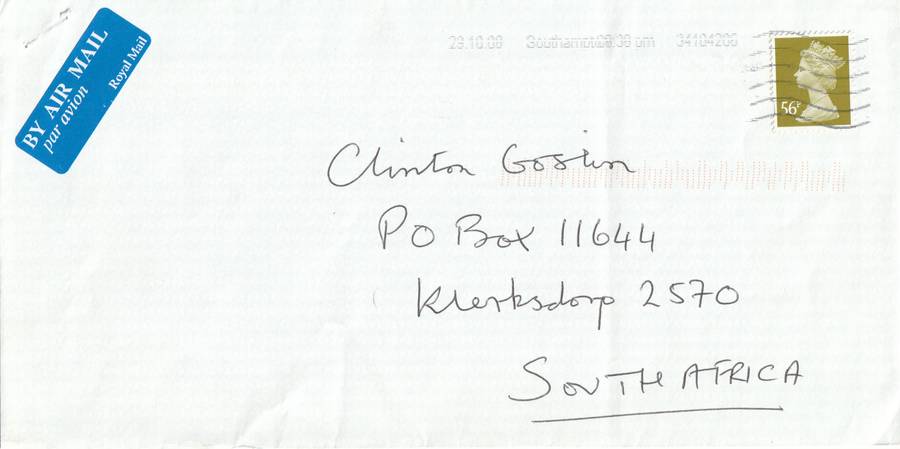 BY AIR MAIL
par avion
Royal Mail
29.10.08 34104206
56P
Clinton Goslin
PO Box 11644
Klerksdorp 2570
SOUTH AFRICA